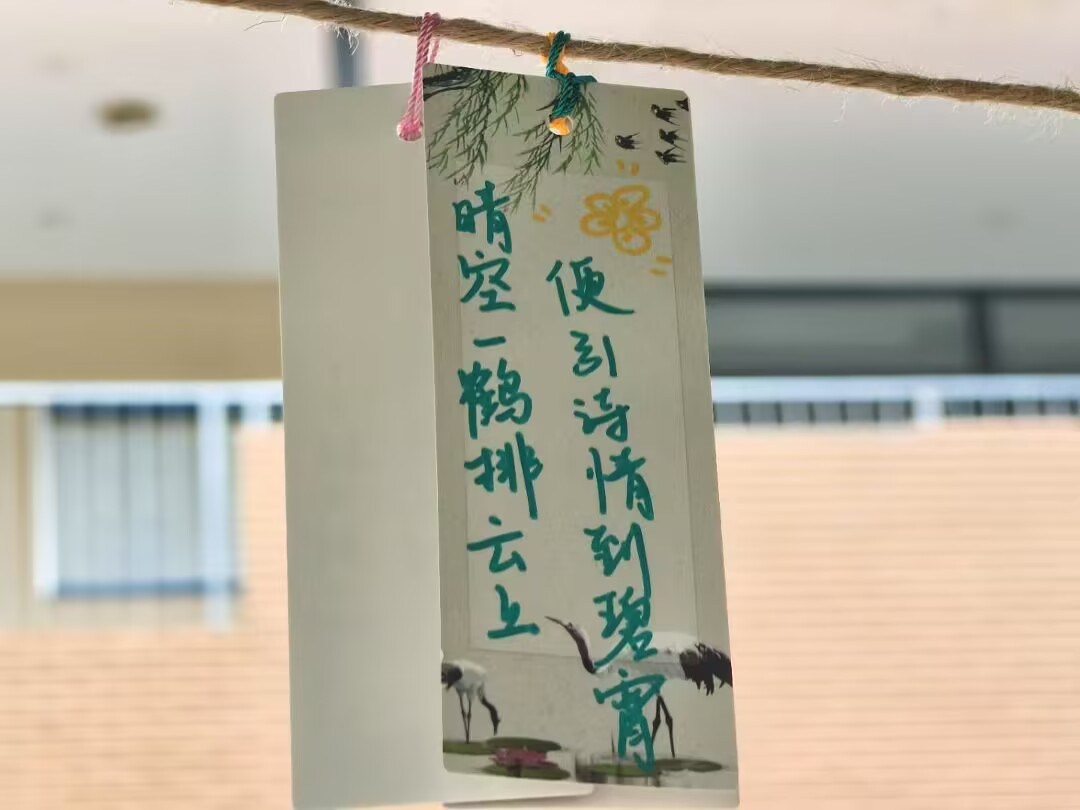 晴空一鹤排云上
便引诗情到碧霄